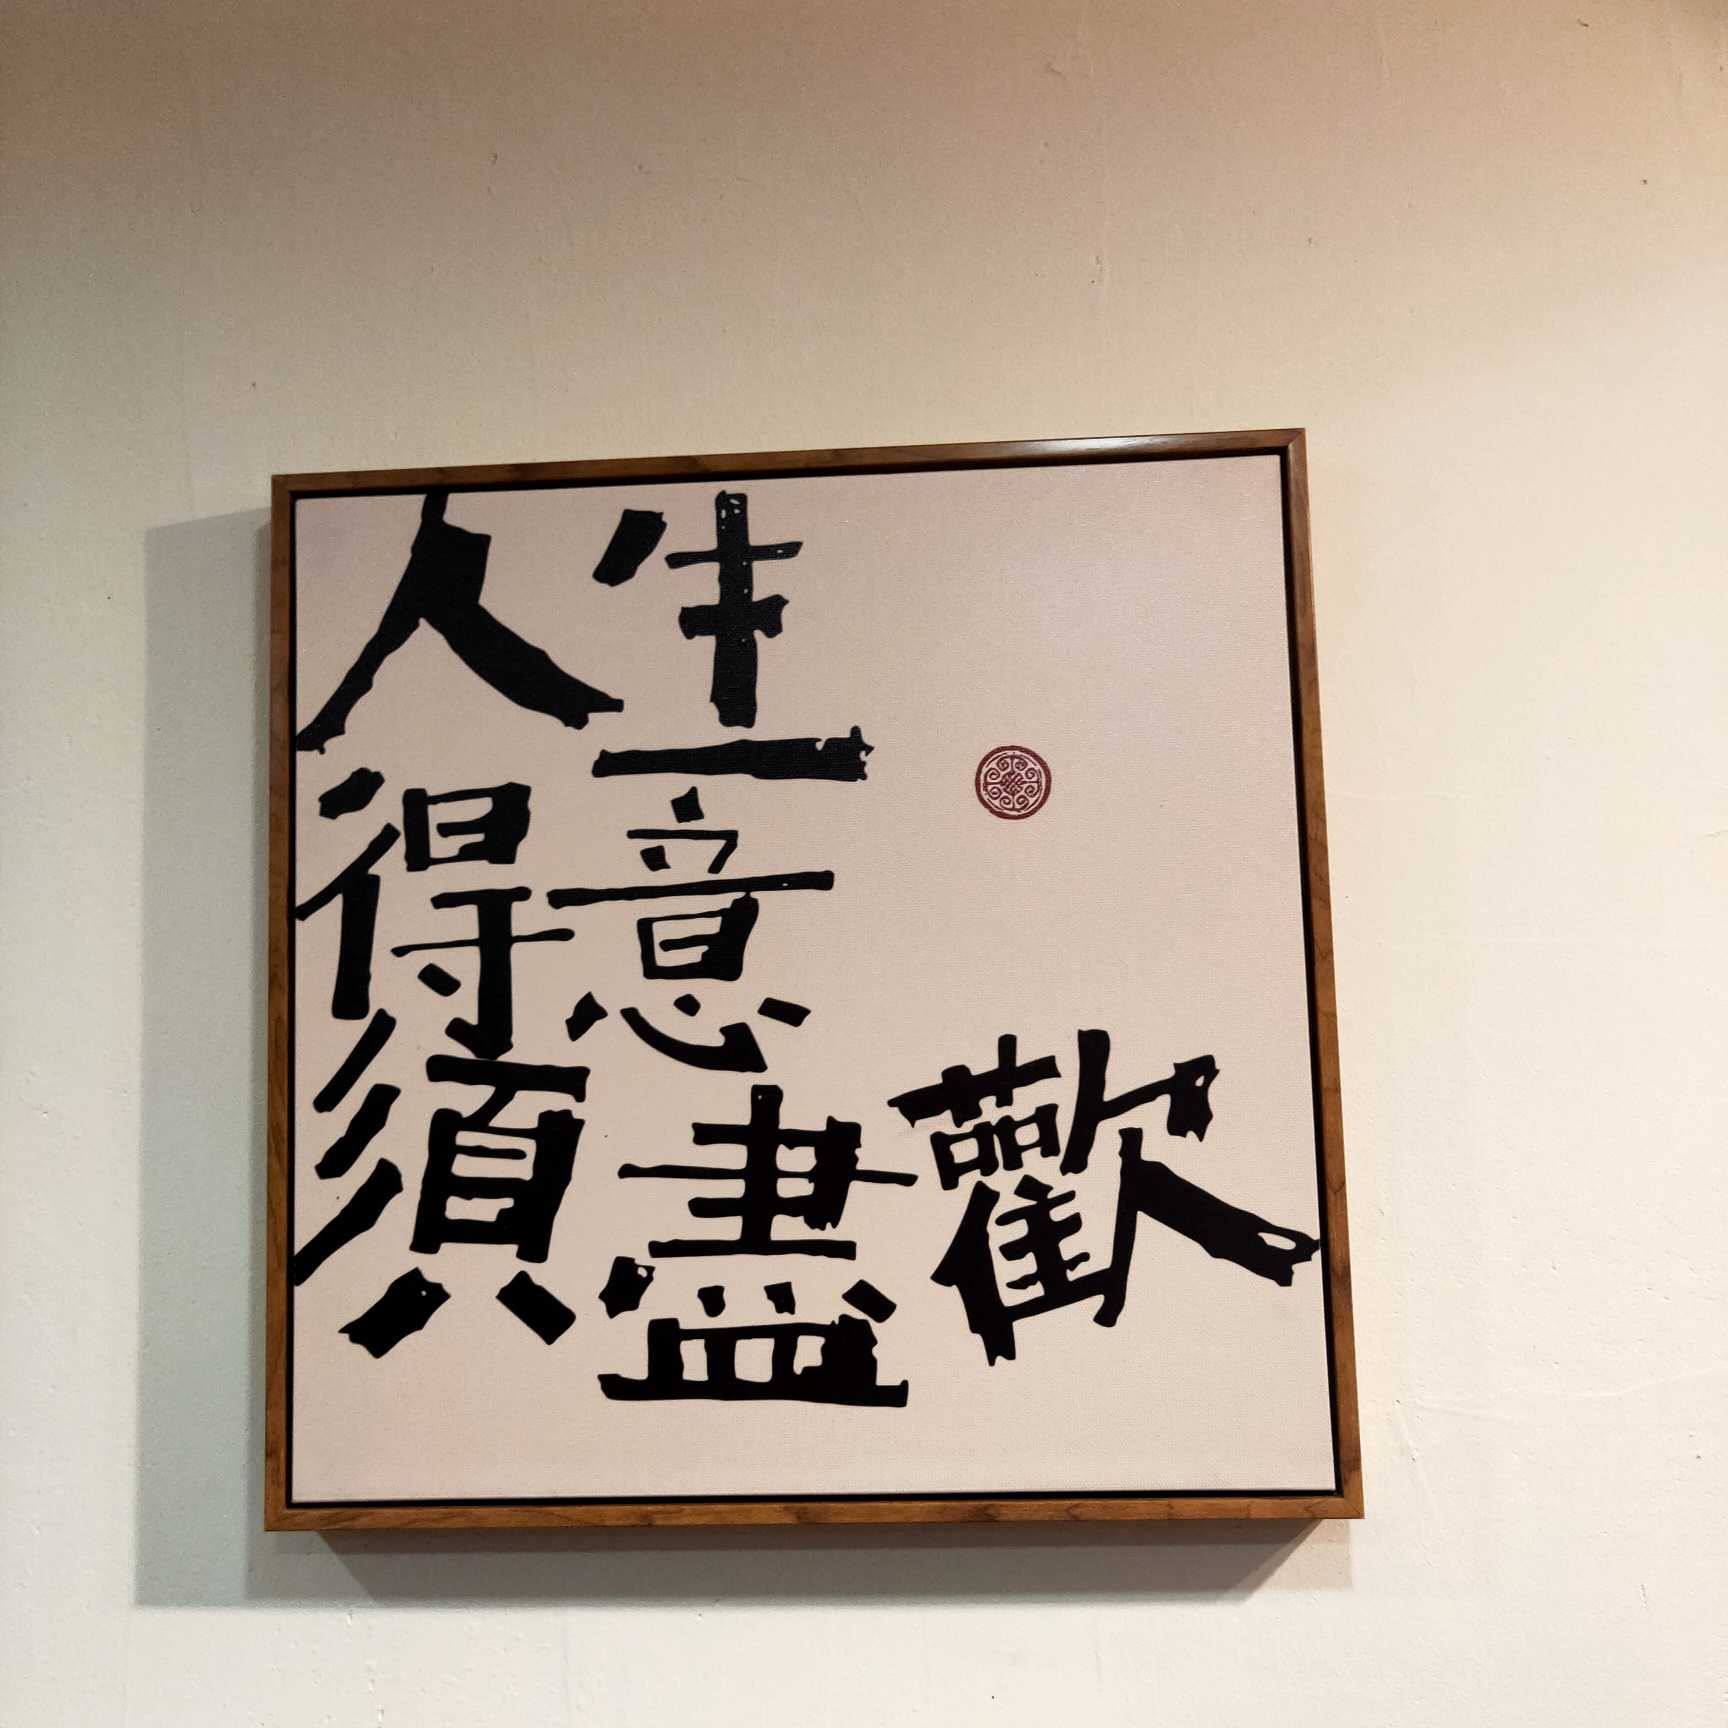 人生
得意
須盡歡